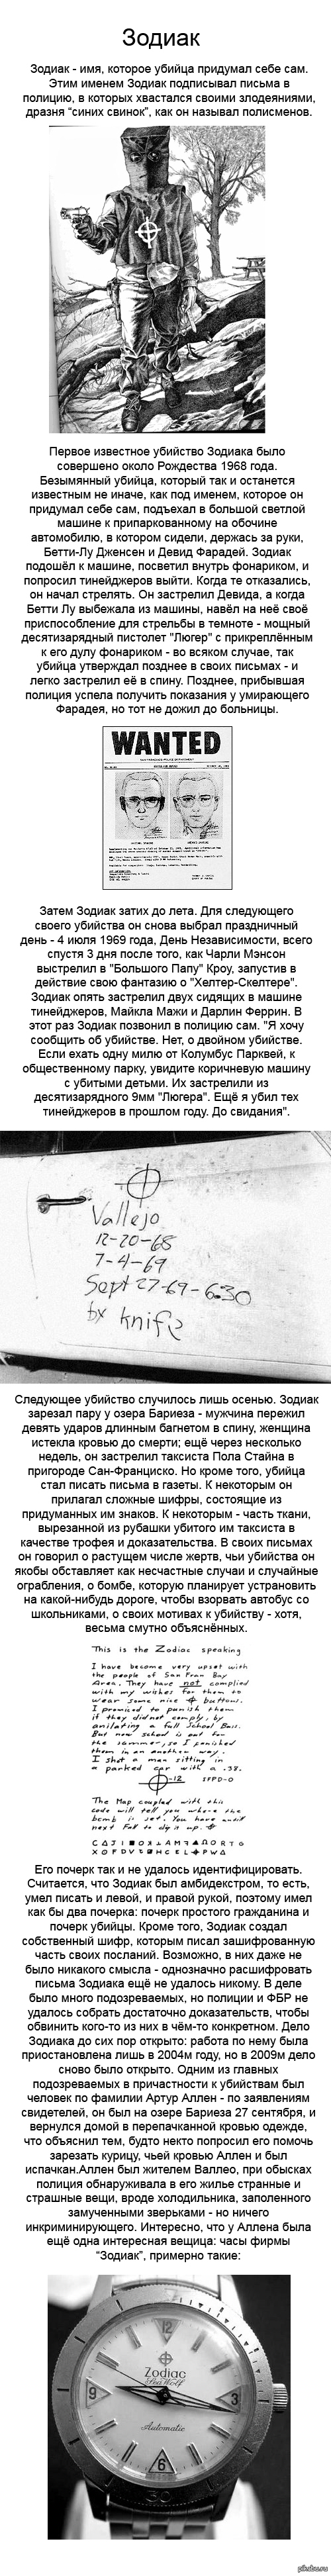 Зодиак
Зодиак - имя, которое убийца придумал себе сам.
Этим именем Зодиак подписывал письма в
полицию, в которых хвастался своими злодеяниями,
дразня “синих свинок”, как он называл полисменов.
Первое известное убийство Зодиака было
совершено около Рождества 1968 года.
Безымянный убийца, который так и останется
известным не иначе, как под именем, которое он
придумал себе сам, подъехал в большой светлой
машине к припаркованному на обочине
автомобилю, в котором сидели, держась за руки,
Бетти-Лу Дженсен и Девид Фарадей. Зодиак
подошёл к машине, посветил внутрь фонариком, и
попросил тинейджеров выйти. Когда те отказались,
он начал стрелять. Он застрелил Девида, а когда
Бетти Лу выбежала из машины, навёл на неё своё
приспособление для стрельбы в темноте - мощный
десятизарядный пистолет "Люгер" с прикреплённым
к его дулу фонариком - во всяком случае, так
убийца утверждал позднее в своих письмах - и
легко застрелил её в спину. Позднее, прибывшая
полиция успела получить показания у умирающего
Фарадея, но тот не дожил до больницы.
WANTED
SAN FRANCISCO POLICE DEPARTMENT
Затем Зодиак затих до лета. Для следующего
своего убийства он снова выбрал праздничный
день - 4 июля 1969 года, День Независимости, всего
спустя 3 дня после того, как Чарли Мэнсон
выстрелил в "Большого Папу" Кроу, запустив в
действие свою фантазию о "Хелтер-Скелтере".
Зодиак опять застрелил двух сидящих в машине
тинейджеров, Майкла Мажи и Дарлин Феррин. В
этот раз Зодиак позвонил в полицию сам. "Я хочу
сообщить об убийстве. Нет, о двойном убийстве.
Если ехать одну милю от Колумбус Парквей, к
общественному парку, увидите коричневую машину
с убитыми детьми. Их застрелили из
десятизарядного 9мм "Люгера". Ещё я убил тех
тинейджеров в прошлом году. До свидания".
Vallejo
12-20-68
7-4-69
Sept 27-69-6:30
by knife
Следующее убийство случилось лишь осенью. Зодиак
зарезал пару у озера Бариеза - мужчина пережил
девять ударов длинным багнетом в спину, женщина
истекла кровью до смерти; ещё через несколько
недель, он застрелил таксиста Пола Стайна в
пригороде Сан-Франциско. Но кроме того, убийца
стал писать письма в газеты. К некоторым он
прилагал сложные шифры, состоящие из
придуманных им знаков. К некоторым - часть ткани,
вырезанной из рубашки убитого им таксиста в
качестве трофея и доказательства. В своих письмах
он говорил о растущем числе жертв, чьи убийства он
якобы обставляет как несчастные случаи и случайные
ограбления, о бомбе, которую планирует установить
на какой-нибудь дороге, чтобы взорвать автобус со
школьниками, о своих мотивах к убийству - хотя,
весьма смутно объяснённых.
This is the Zodiac speaking
I have become very upset with
the people of San Fran Bay
Area. They have not complied
with my wishes for them to
wear some nice ⌖ buttons.
I promised to punish them
if they did not comply, by
anilating a full School Buss.
But now school is out for
the summer, so I punished
them in an another way.
I shot a man sitting in
a parked car with a .38.
⌖-12 SFPD-0
The Map coupled with this
code will tell you where the
bomb is set. You have untill
next Fall to dig it up. ⌖
Его почерк так и не удалось идентифицировать.
Считается, что Зодиак был амбидекстром, то есть,
умел писать и левой, и правой рукой, поэтому имел
как бы два почерка: почерк простого гражданина и
почерк убийцы. Кроме того, Зодиак создал
собственный шифр, которым писал зашифрованную
часть своих посланий. Возможно, в них даже не
было никакого смысла - однозначно расшифровать
письма Зодиака ещё не удалось никому. В деле
было много подозреваемых, но полиции и ФБР не
удалось собрать достаточно доказательств, чтобы
обвинить кого-то из них в чём-то конкретном. Дело
Зодиака до сих пор открыто: работа по нему была
приостановлена лишь в 2004м году, но в 2009м дело
снова было открыто. Одним из главных
подозреваемых в причастности к убийствам был
человек по фамилии Артур Аллен - по заявлениям
свидетелей, он был на озере Бариеза 27 сентября, и
вернулся домой в перепачканной кровью одежде,
что объяснил тем, будто некто попросил его помочь
зарезать курицу, чьей кровью Аллен и был
испачкан.Аллен был жителем Валлео, при обысках
полиция обнаруживала в его жилье странные и
страшные вещи, вроде холодильника, заполенного
замученными зверьками - но ничего
инкриминирующего. Интересно, что у Аллена была
ещё одна интересная вещица: часы фирмы
“Зодиак”, примерно такие:
12
Zodiac
Sea Wolf
9
3
Automatic
6
30
pikabu.ru